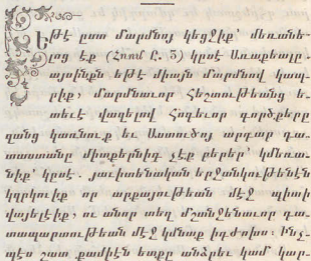 Եթէ ըստ մարմնոյ կեցջիք՝ մեռանե-
լոց էք (Հռոմ Ը. 5) կըսէ Առաքեալը.
այսինքն եթէ միայն մարմնով կապ-
րիք, մարմնաւոր հեշտութեանց ե-
տեւէ վազելով Հոգեւոր գործքերը
զանց կառնուք եւ Աստուծոյ արդար դա-
տաստանը միտքերնիդ չէք բերեր՝ կմեռա-
նիք՝ կըսէ. յաւիտենական երջանկութենէն
կզրկուիք որ արքայութեան մէջ պիտի
վայելէիք, ու անոր տեղ մշտնջենաւոր դա-
տապարտութեան մէջ կմնաք իգժոխս։ Ինչ-
պէս շատ քամիէն ետքը անձրեւ կամ կար-